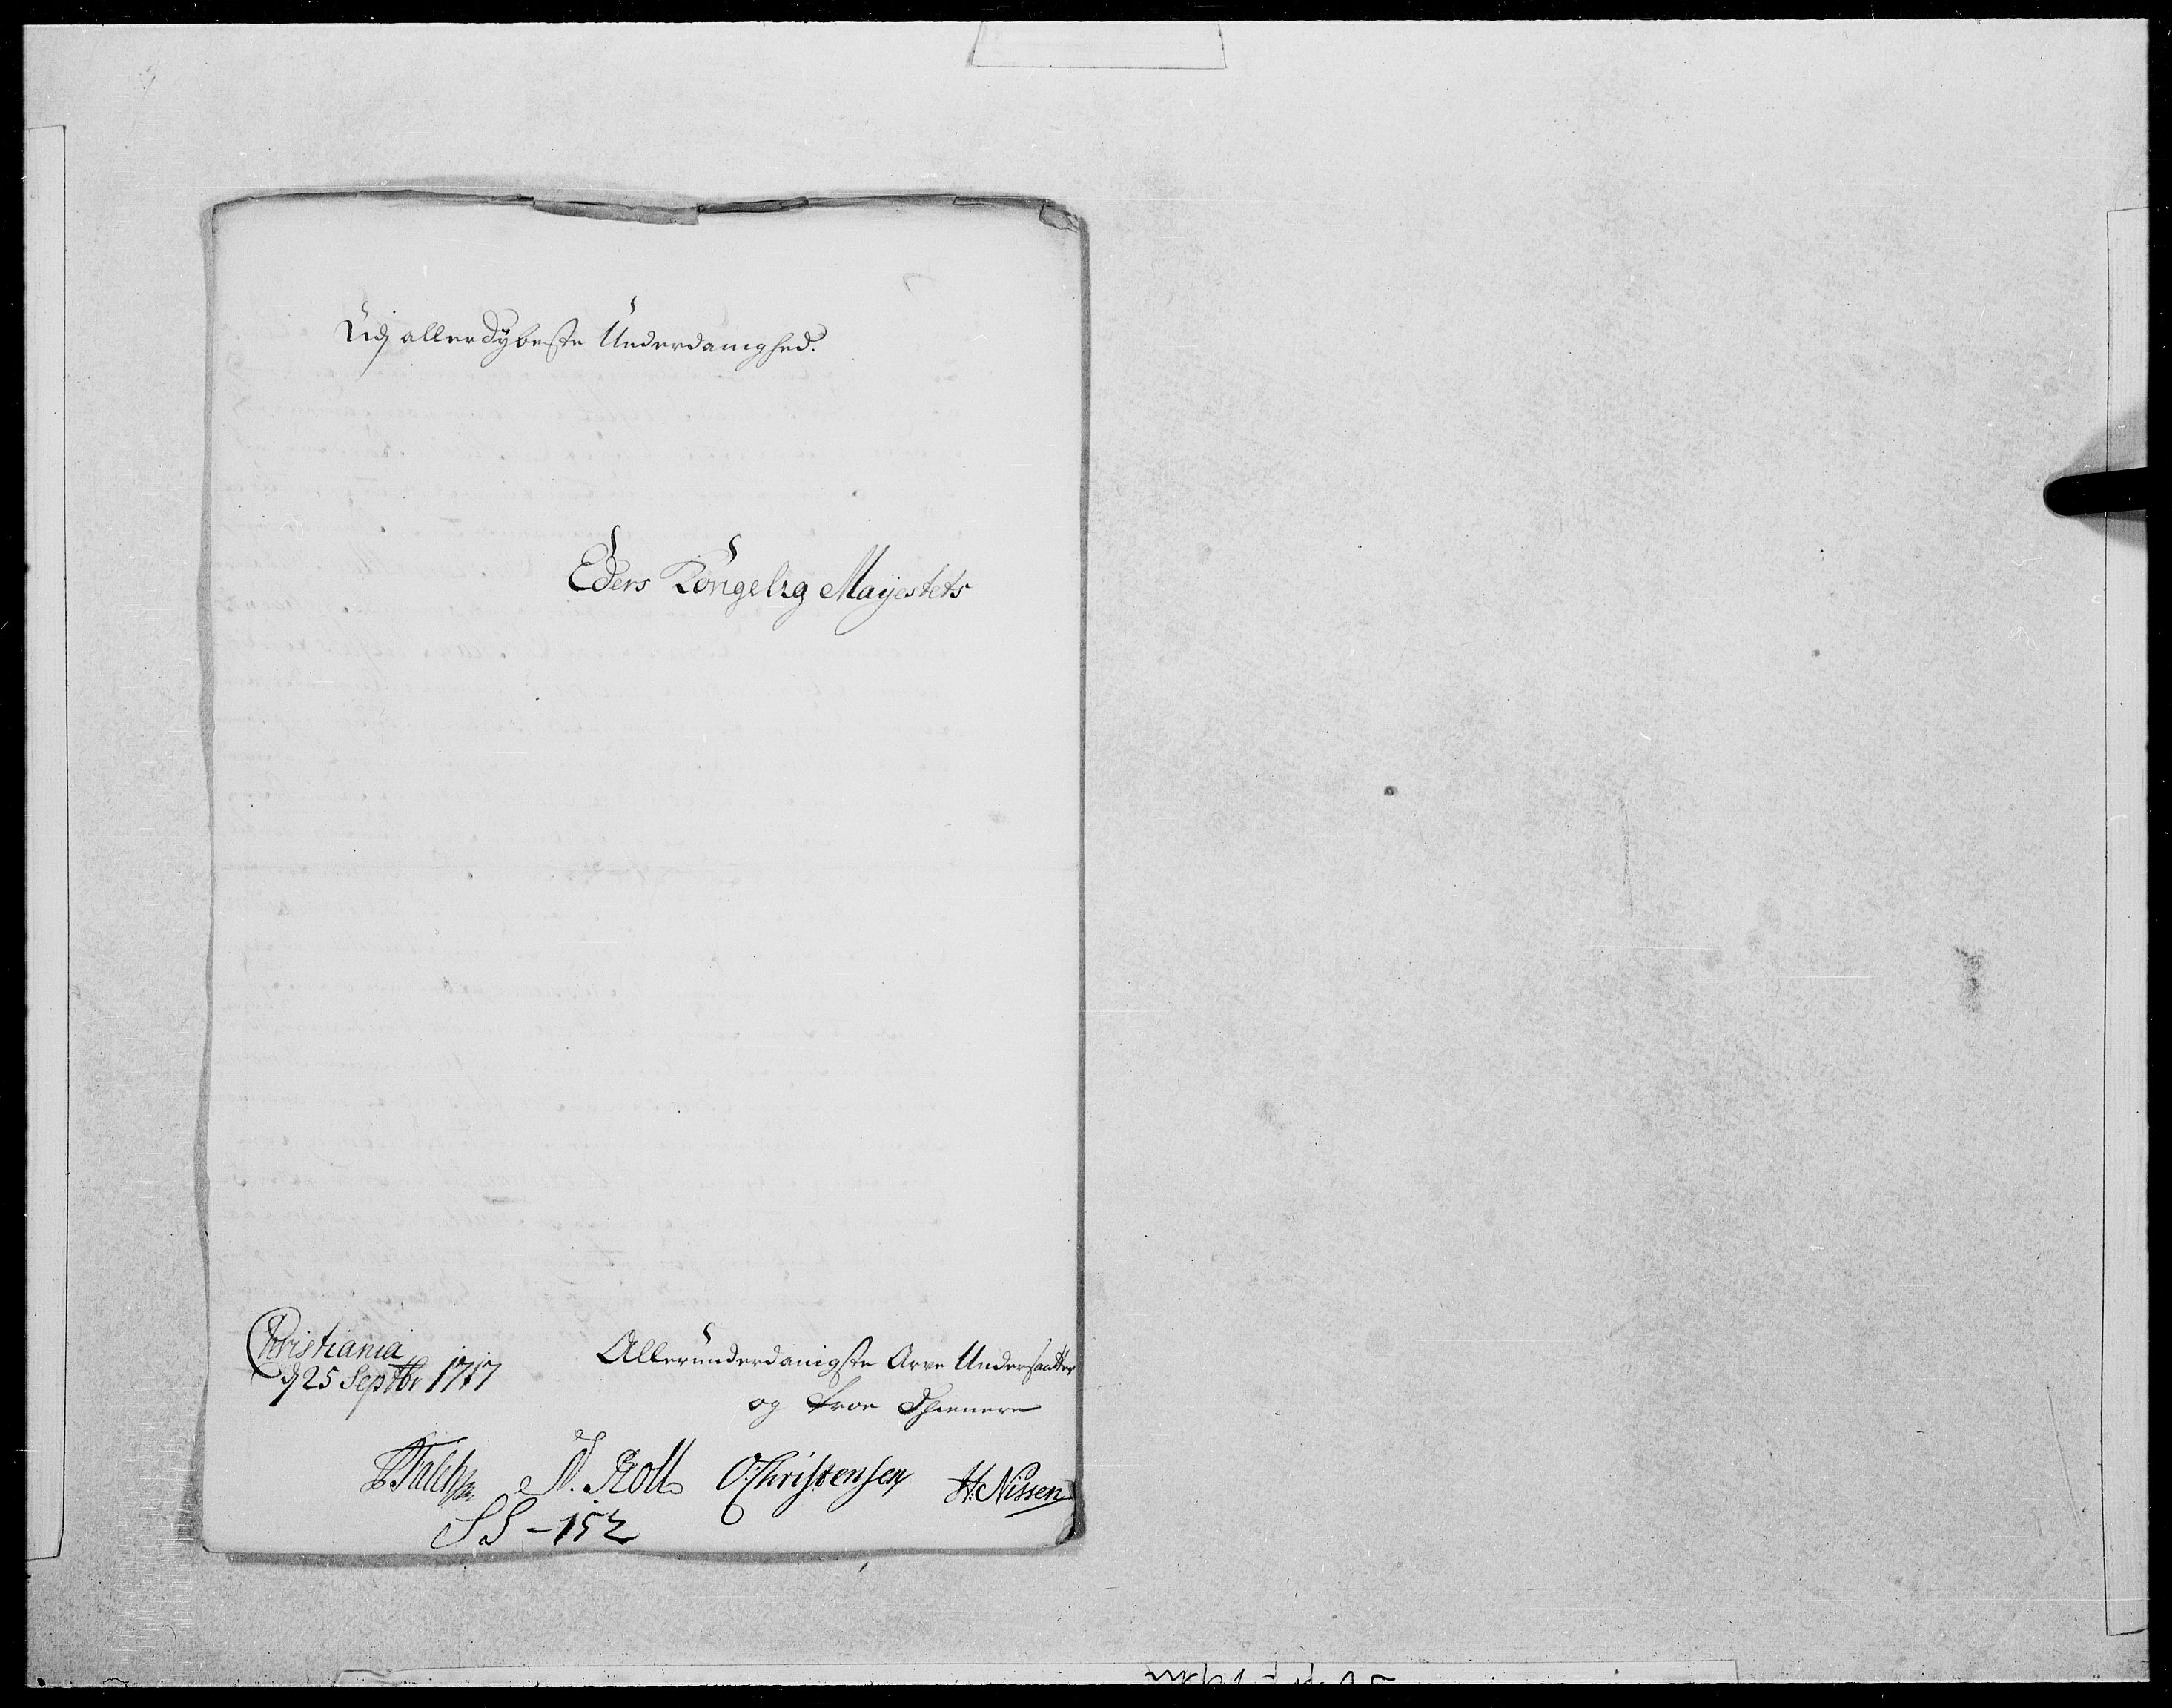 Udj allerdybeste Underdanighed.
Eders Kongelig Mayestets
Christiania
dj 25 Septbr 1717
Allerunderdanigste Arve Undersaatter
og troe Thienere
N. Roll
O: Christensen
H: Nissen
SS - 152